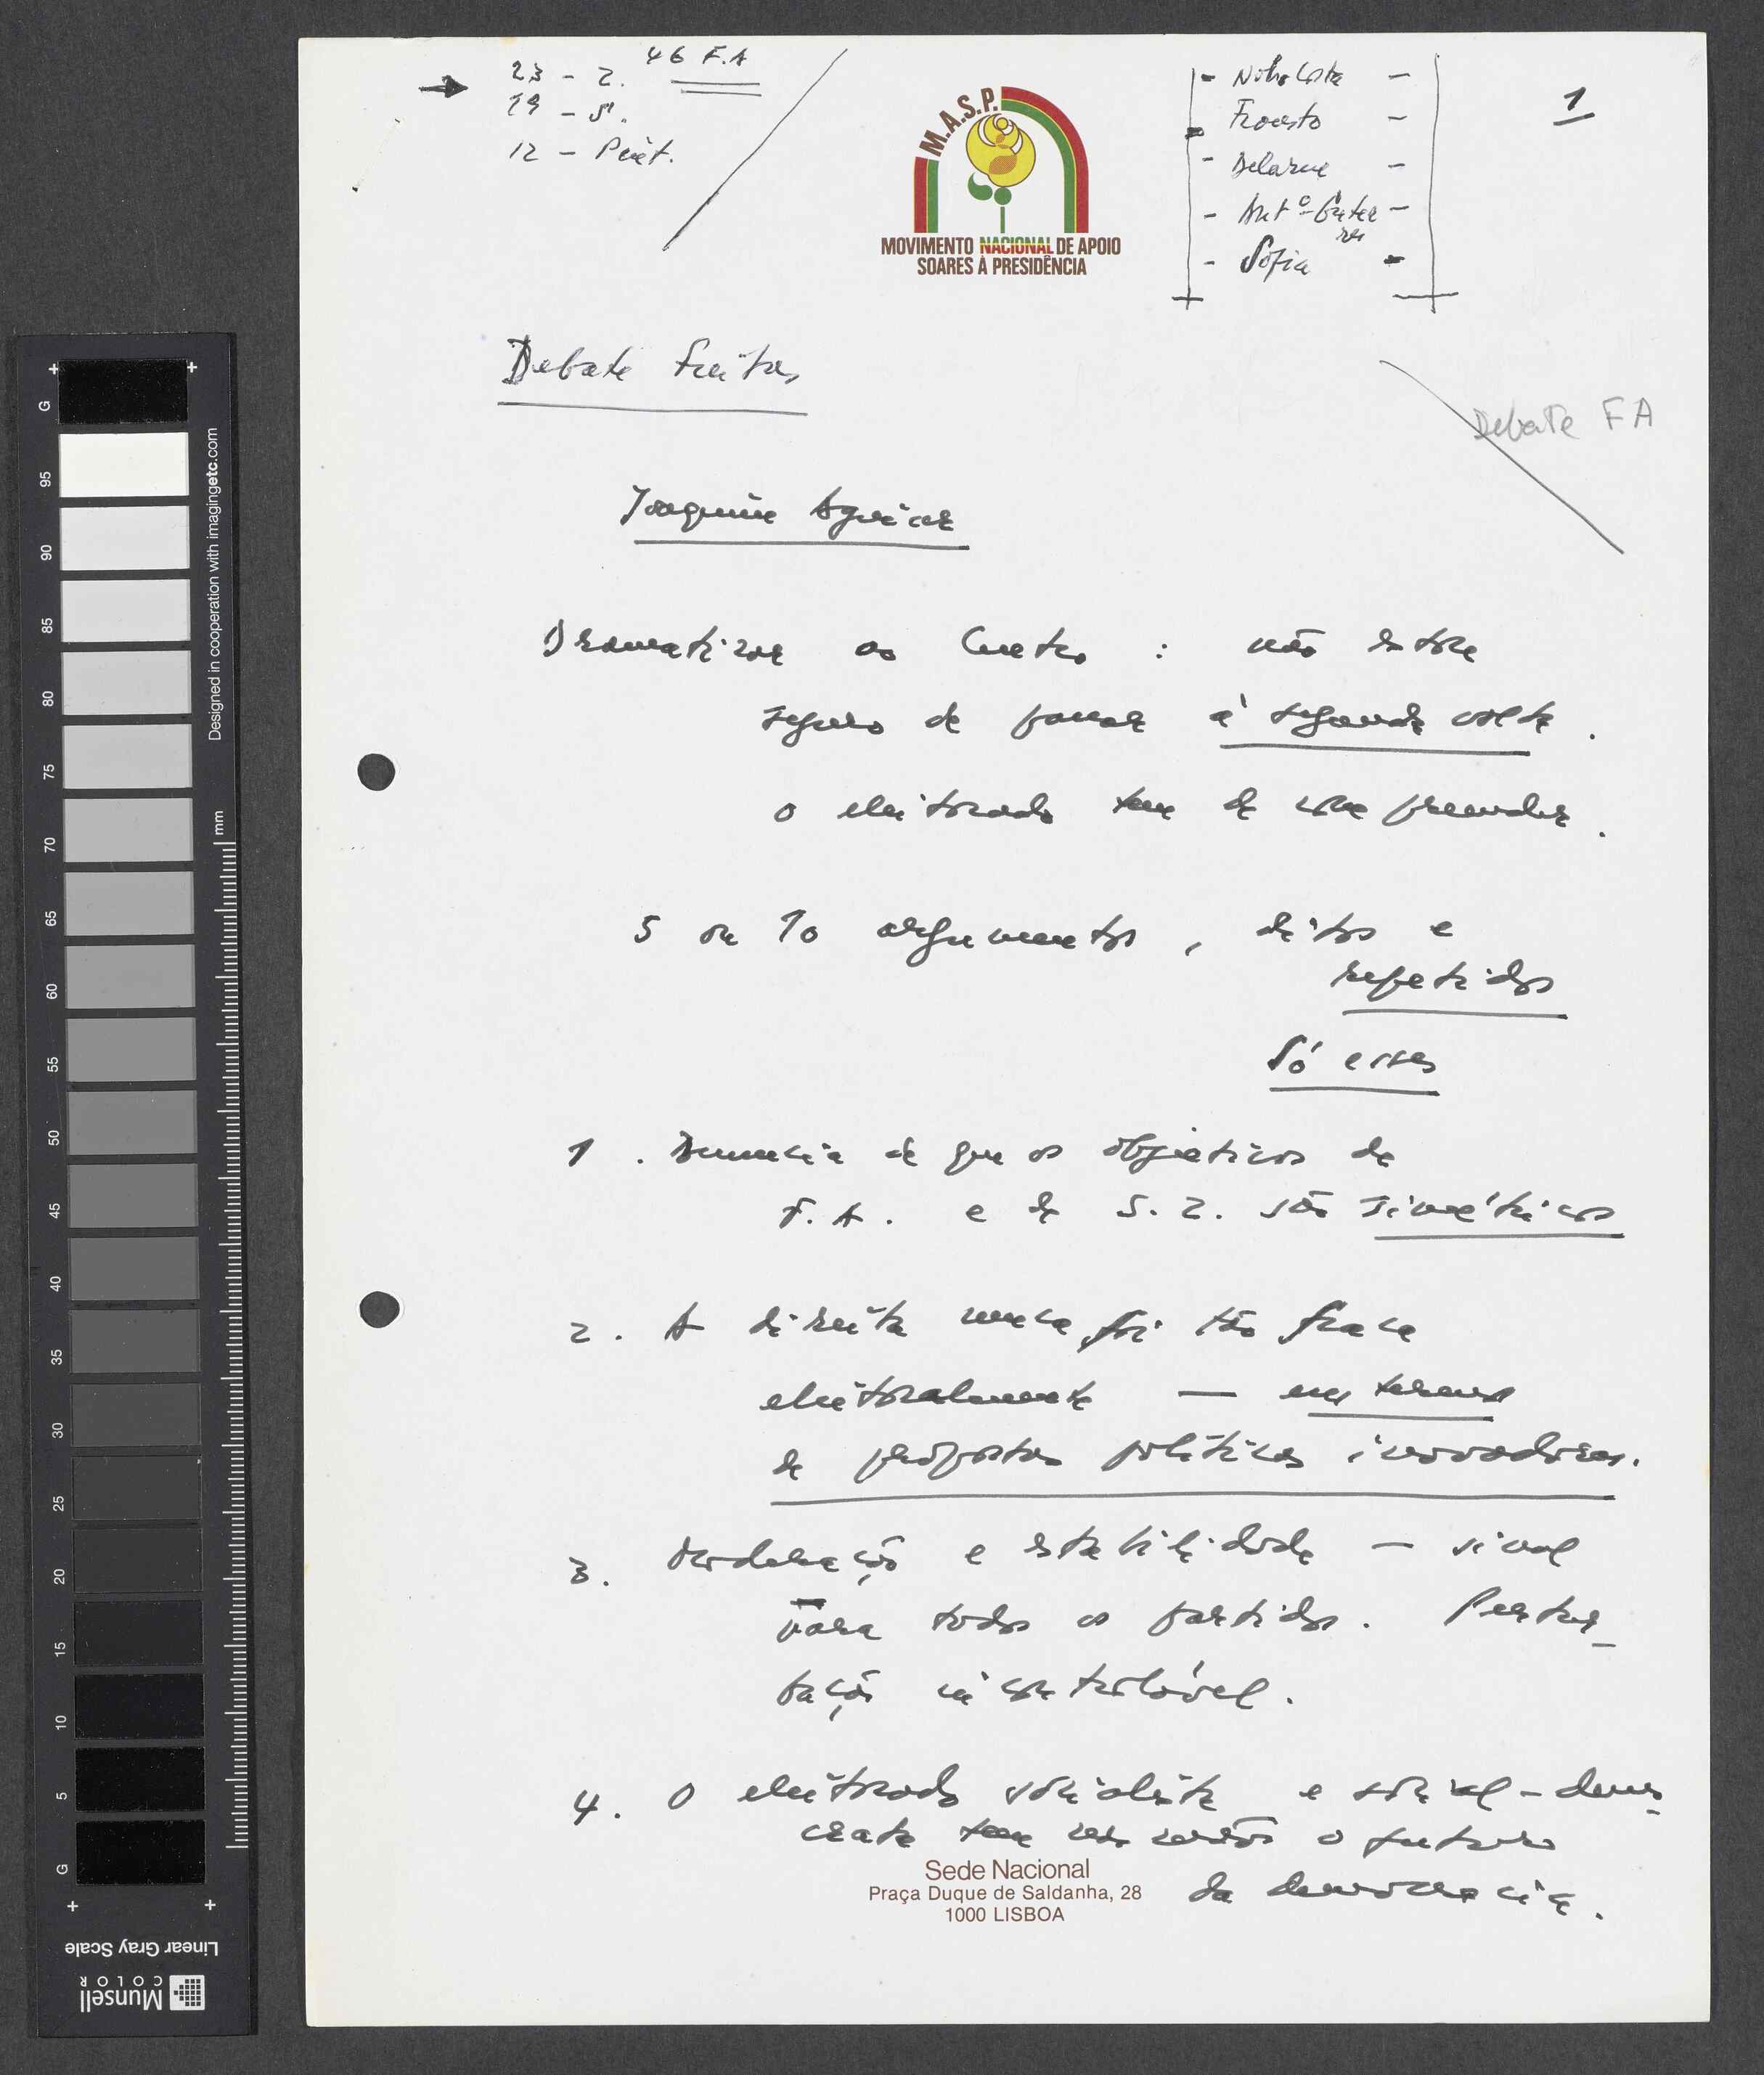 46 F.A
→ 23 - Z.
19 - S.
12 - Pint.
M.A.S.P.
MOVIMENTO NACIONAL DE APOIO
SOARES À PRESIDÊNCIA
- Nobre Costa -
- Fausto -
- Delarue -
- Antº Guter- -
res
- Sofia -
1
Debate Freitas
Debate FA
Joaquim Aguiar
Dramatizar ao Centro : não estou
seguro de passar à segunda volta.
o eleitorado tem de compreender.
5 ou 10 argumentos, ditos e
repetidos
Só esses
1. Denuncia de que os objetivos de
F.A. e de S.Z. são simétricos
2. A direita nunca foi tão fraca
eleitoralmente — em termos
de propostas políticas inovadoras.
3. Moderação e estabilidade — sinal
para todos os partidos. Pertur_
bação incontrolável.
4. O eleitorado socialista e social-demo_
crata tem nas mãos o futuro
da democracia.
Sede Nacional
Praça Duque de Saldanha, 28
1000 LISBOA
Designed in cooperation with imagingetc.com
mm
G
95
90
85
80
75
70
65
60
55
50
45
40
35
30
25
20
15
10
5
G
Linear Gray Scale
Munsell
COLOR